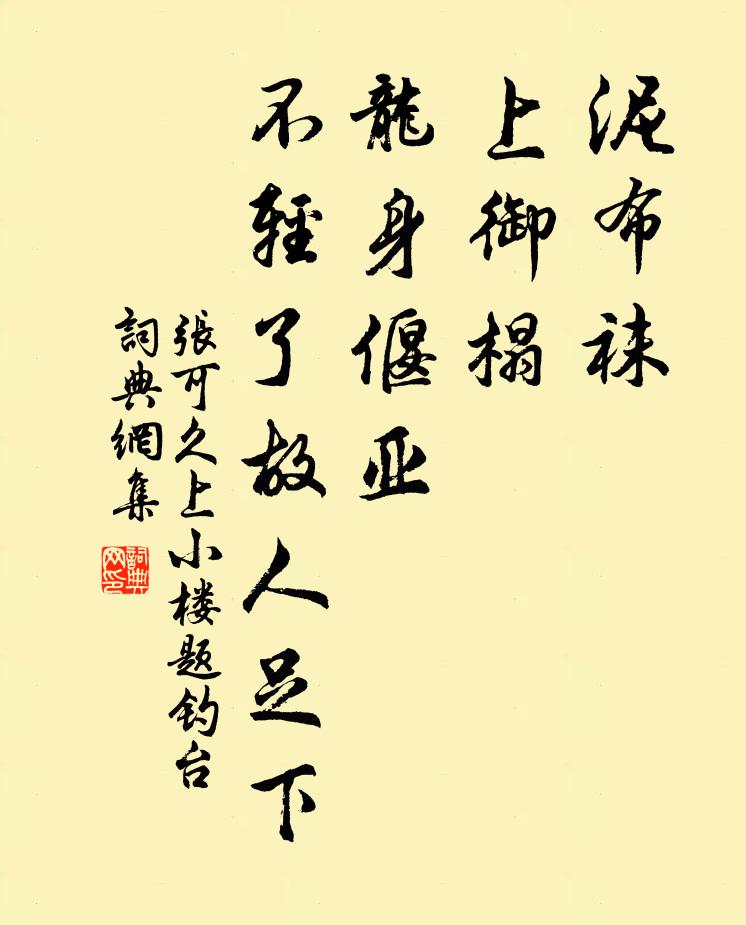 泥布袜
上御榻
龍身偃亚
不輕了故人足下
張可久上小楼题钓台
詞典網集
詞典网印